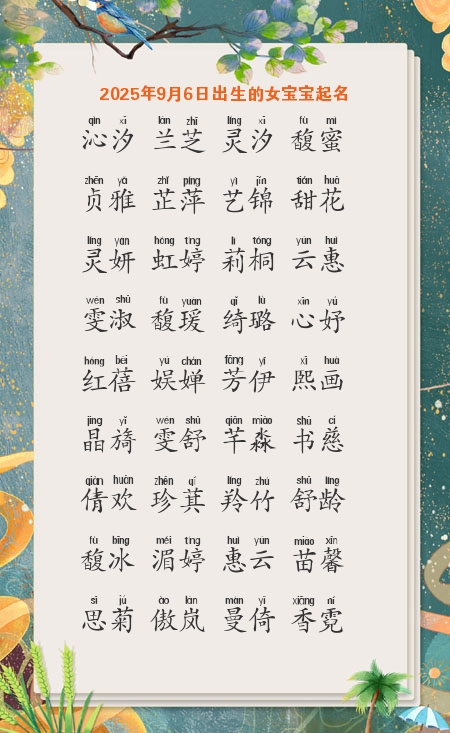 2025年9月6日出生的女宝宝起名
qìn xī lán zhī líng xī fù mì
沁汐 兰芝 灵汐 馥蜜
zhēn yǎ zhǐ píng yì jǐn tián huā
贞雅 芷萍 艺锦 甜花
líng yán hóng tíng lì tóng yún huì
灵妍 虹婷 莉桐 云惠
wén shū fù yuán qǐ lù xīn yú
雯淑 馥瑗 绮璐 心妤
hóng bèi yú chán fāng yī xī huà
红蓓 娱婵 芳伊 熙画
jīng yǐ wén shū qiān miǎo shū cí
晶旖 雯舒 芊淼 书慈
qiàn huān zhēn qí líng zhú shū líng
倩欢 珍萁 羚竹 舒龄
fù bīng méi tíng huì yún miáo xīn
馥冰 湄婷 惠云 苗馨
sī jú ào lán màn yǐ xiāng ní
思菊 傲岚 曼倚 香霓